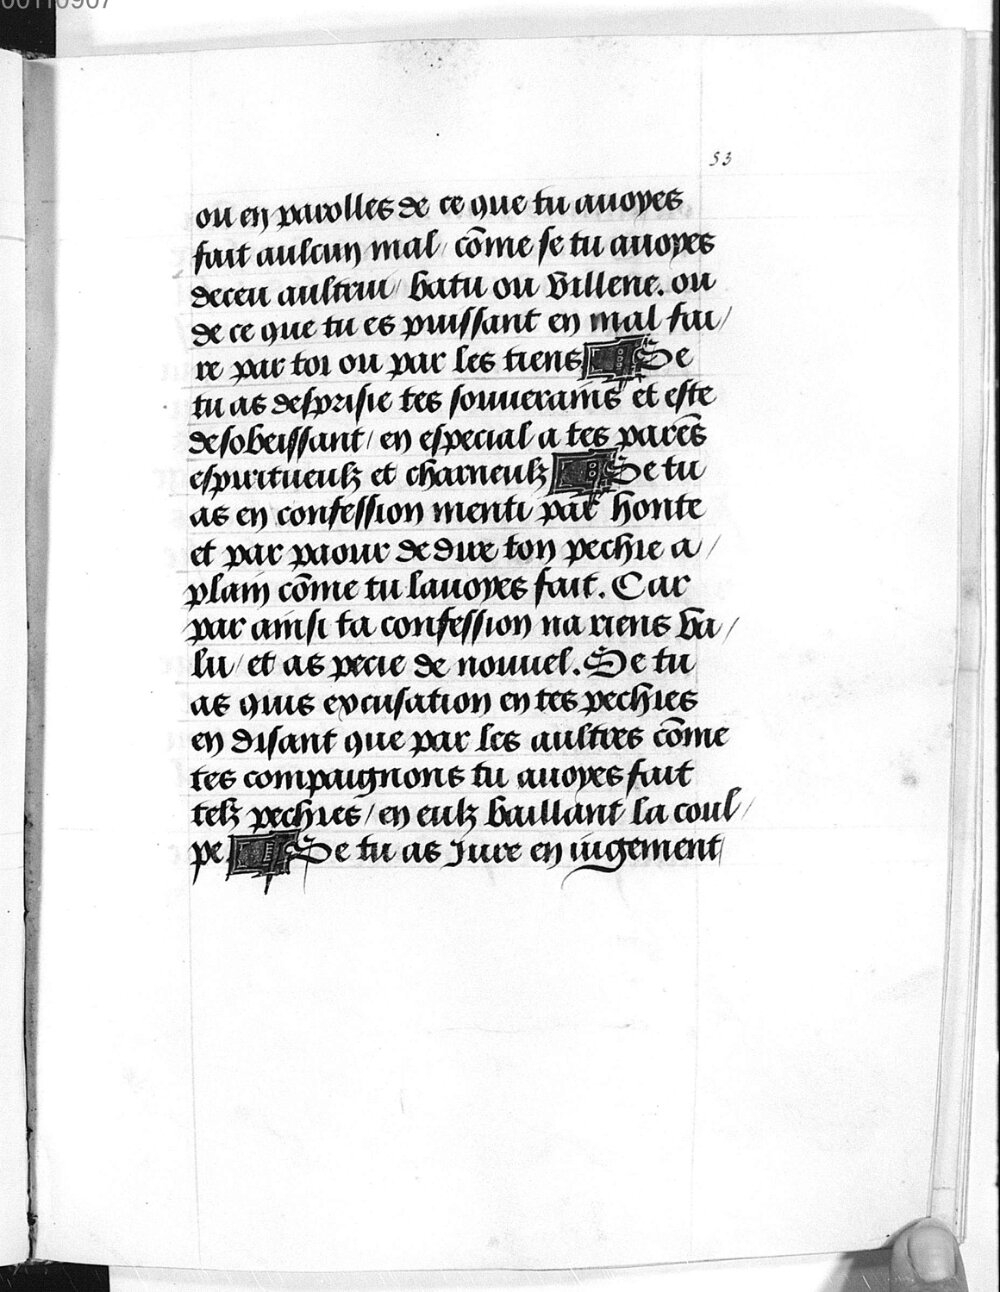 00110907
53
ou en parolles de ce que tu auoyes
fait aulcun mal / cōme se tu auoyes
deceu aultrui / batu ou villene. ou
de ce que tu es puissant en mal fai/
re par toi ou par les tiens Se
tu as desprisie tes souuerains et este
desobeissant / en especial a tes parēs
espirituelz et charnelz Se tu
as en confession menti par honte
et par paour de dire ton pechie a /
plain cōme tu lauoyes fait. Car
par ainsi ta confession na riens va/
lu / et as pecie de nouuel. Se tu
as quis excusation en tes pechies
en disant que par les aultres cōme
tes compaignons tu auoyes fait
telz pechies / en eulz baillant la coul/
pe Se tu as Jure en iugement